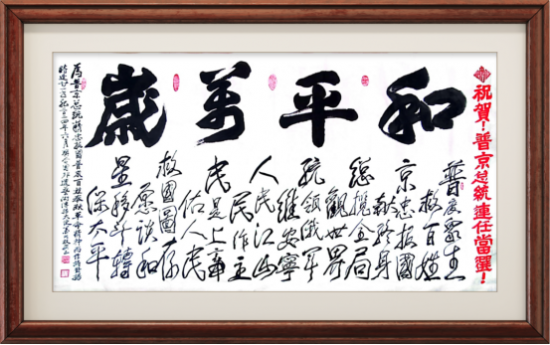 祝賀!普京总統連任當選!
和平萬歲
普度眾生
救百姓
京忠报國
献終身
總攬全局
觀世界
統領俄軍
維安寧
人民江山
民作主
民是上帝
佑人民
救國圖存
愿談和
星移斗轉
保太平